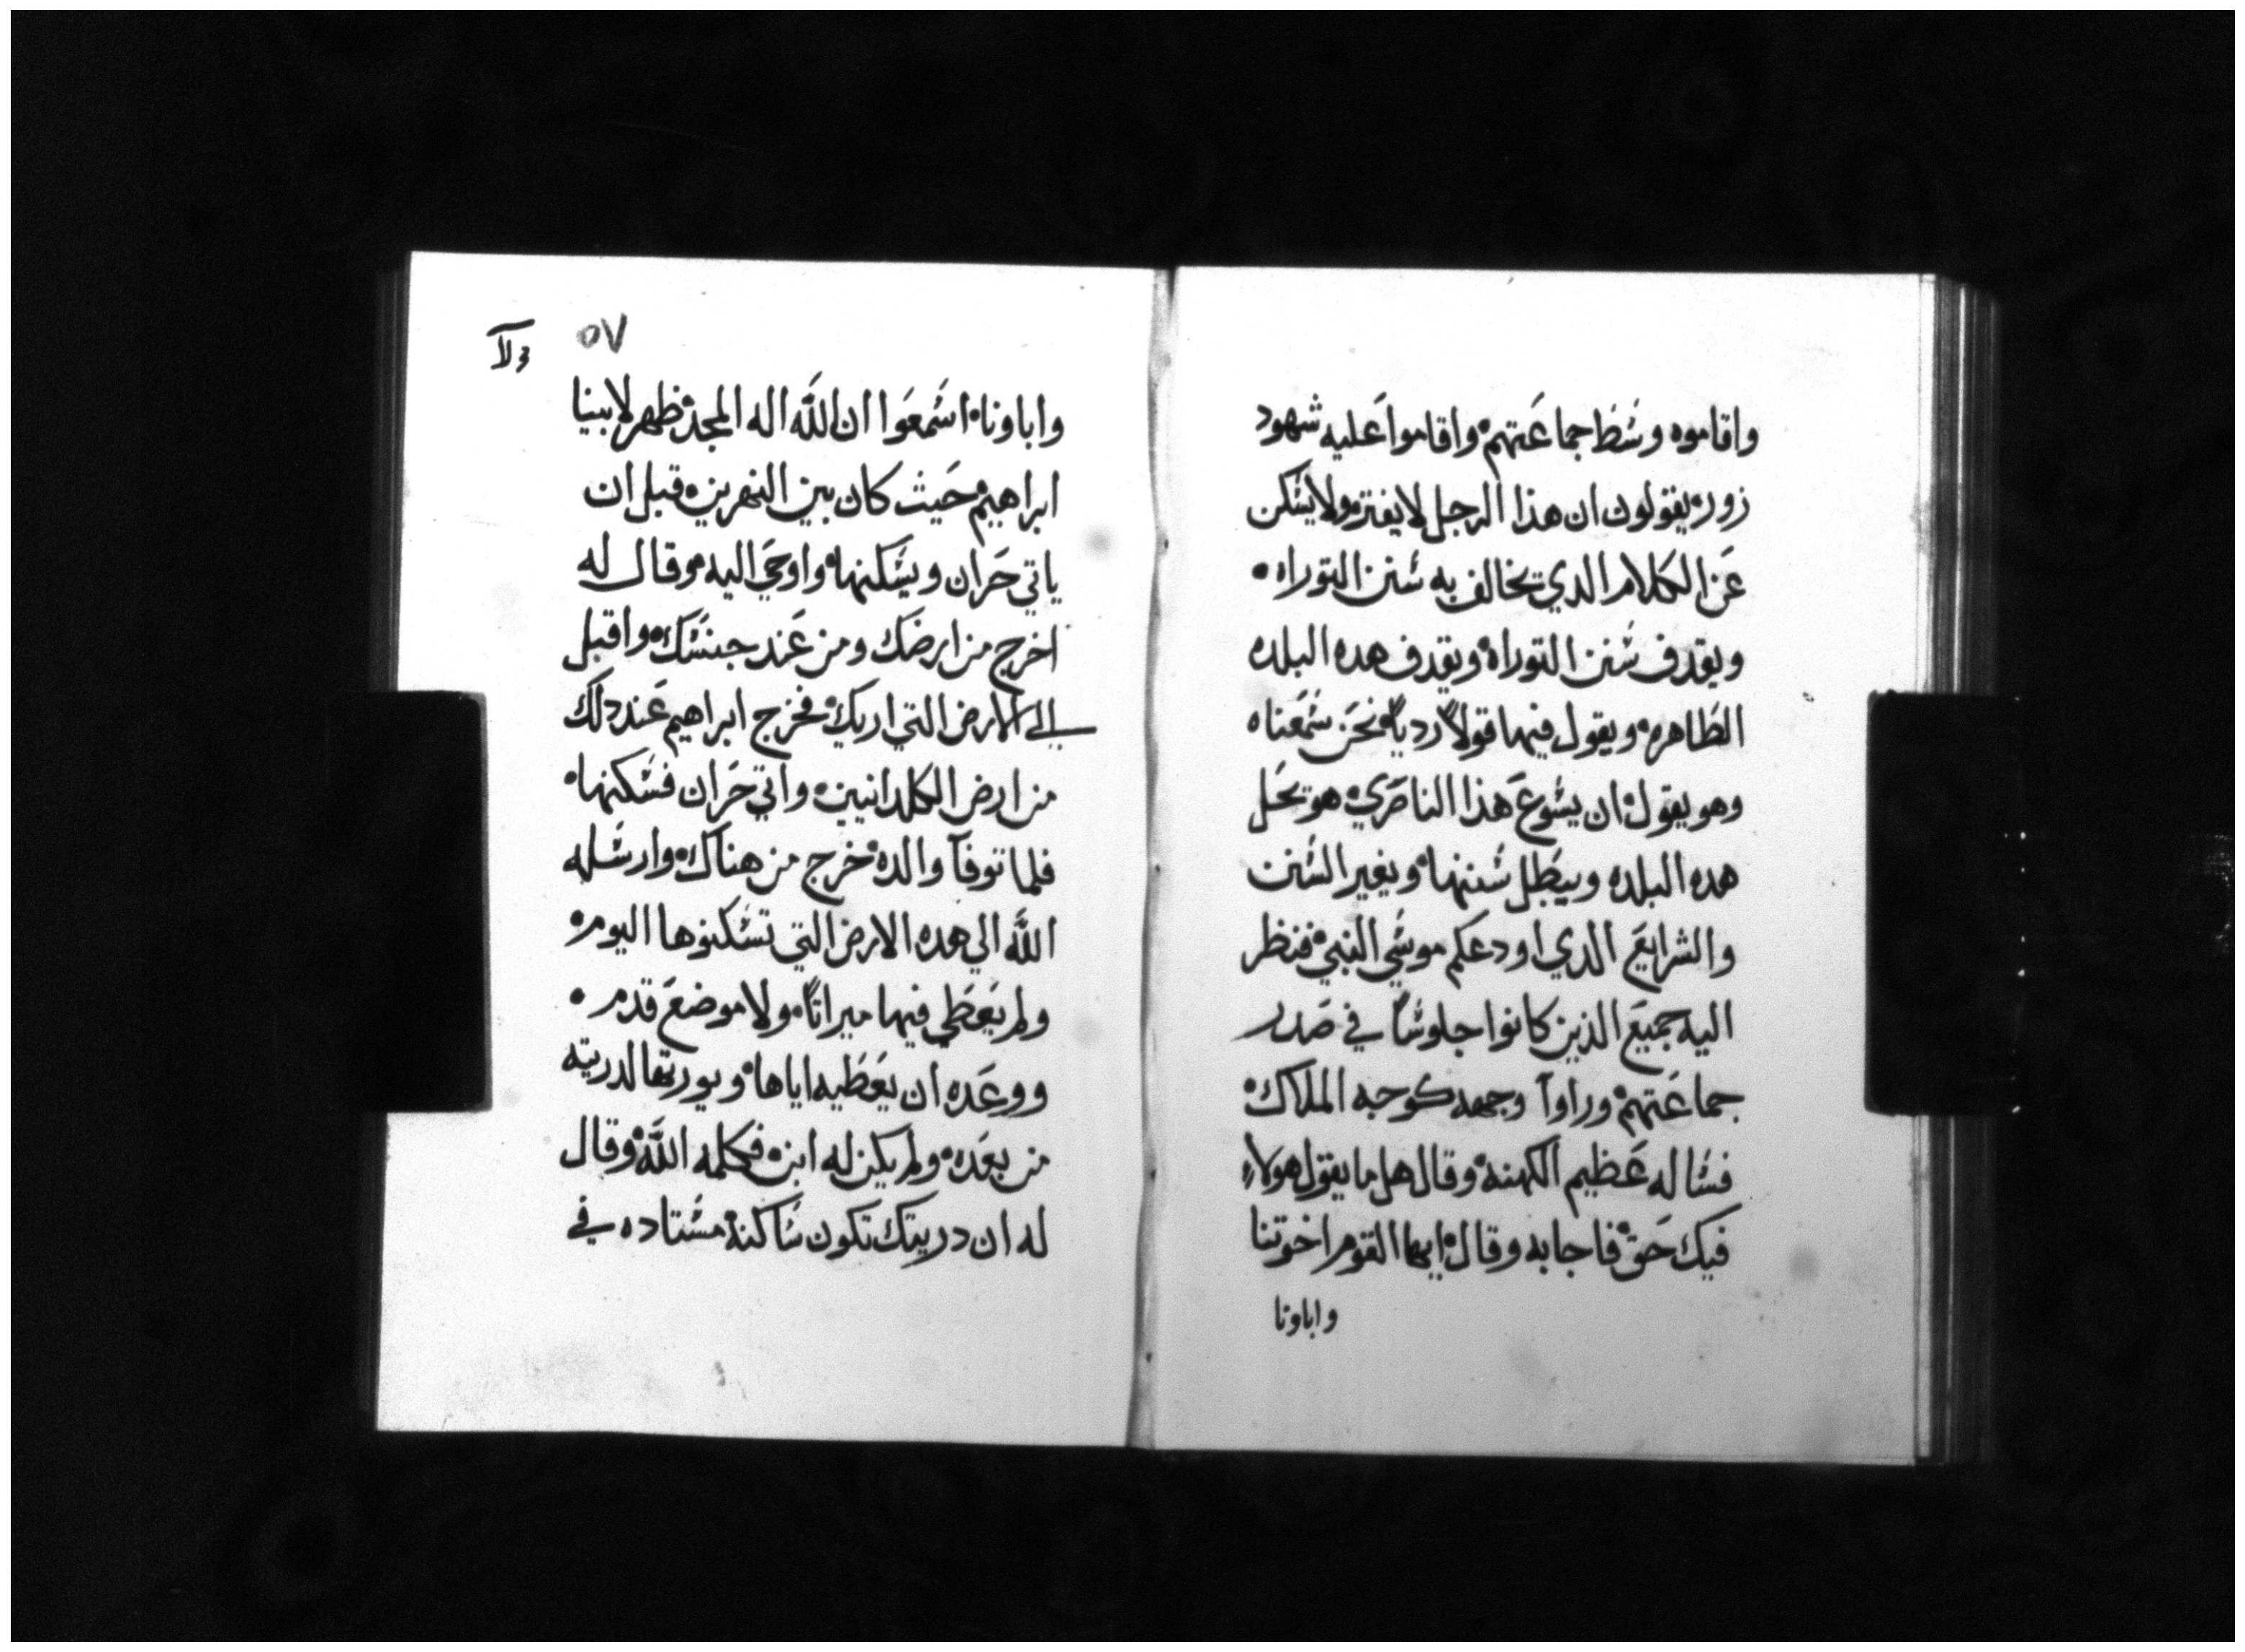 واقاموه وشط جماعتهم واقاموا عليه شهود
زور يقولون ان هذا الرجل لا يفتر ولا يشكن
عن الكلام الدي يخالف به شنن التوراه
ويقدف شنن التوراه ويقدف هده البلده
الطاهره ويقول فيها قولاً ردياً نحن شمعناه
وهو يقول ان يشوع هذا الناصري هو يحل
هده البلده ويبطل شننها ويغير الشنن
والشرايع الدي اودعكم موشي النبي فنظر
اليه جميع الذين كانوا جلوشاً في صدر
جماعتهم وراوآ وجهه كوجه الملاك
فشاله عظيم الكهنه وقال هل ما يقول هولاء
فيك حق فاجابه وقال ايها القوم اخوتنا
واباونا
٥٧
واباونا اشمعوا ان اللّه اله المجد ظهر لابينا
ابراهيم حيث كان بين النهرين قبل ان
ياتي حران ويشكنها واوحي اليه وقال له
اخرج من ارضك ومن عند جنشك واقبل
الي الارض التي اريك فخرج ابراهيم عند دلك
من ارض الكلدانيين واتي حران فشكنها
فلما توفآ والده خرج من هناك وارشله
اللّه الي هده الارض التي تشكنوها اليوم
ولم يعطي فيها ميراثاً ولا موضع قدم
ووعده ان يعطيه اياها ويورثها لدريته
من بعده ولم يكن له ابن فكلمه اللّه وقال
له ان دريتك تكون شاكنه مشتاده في